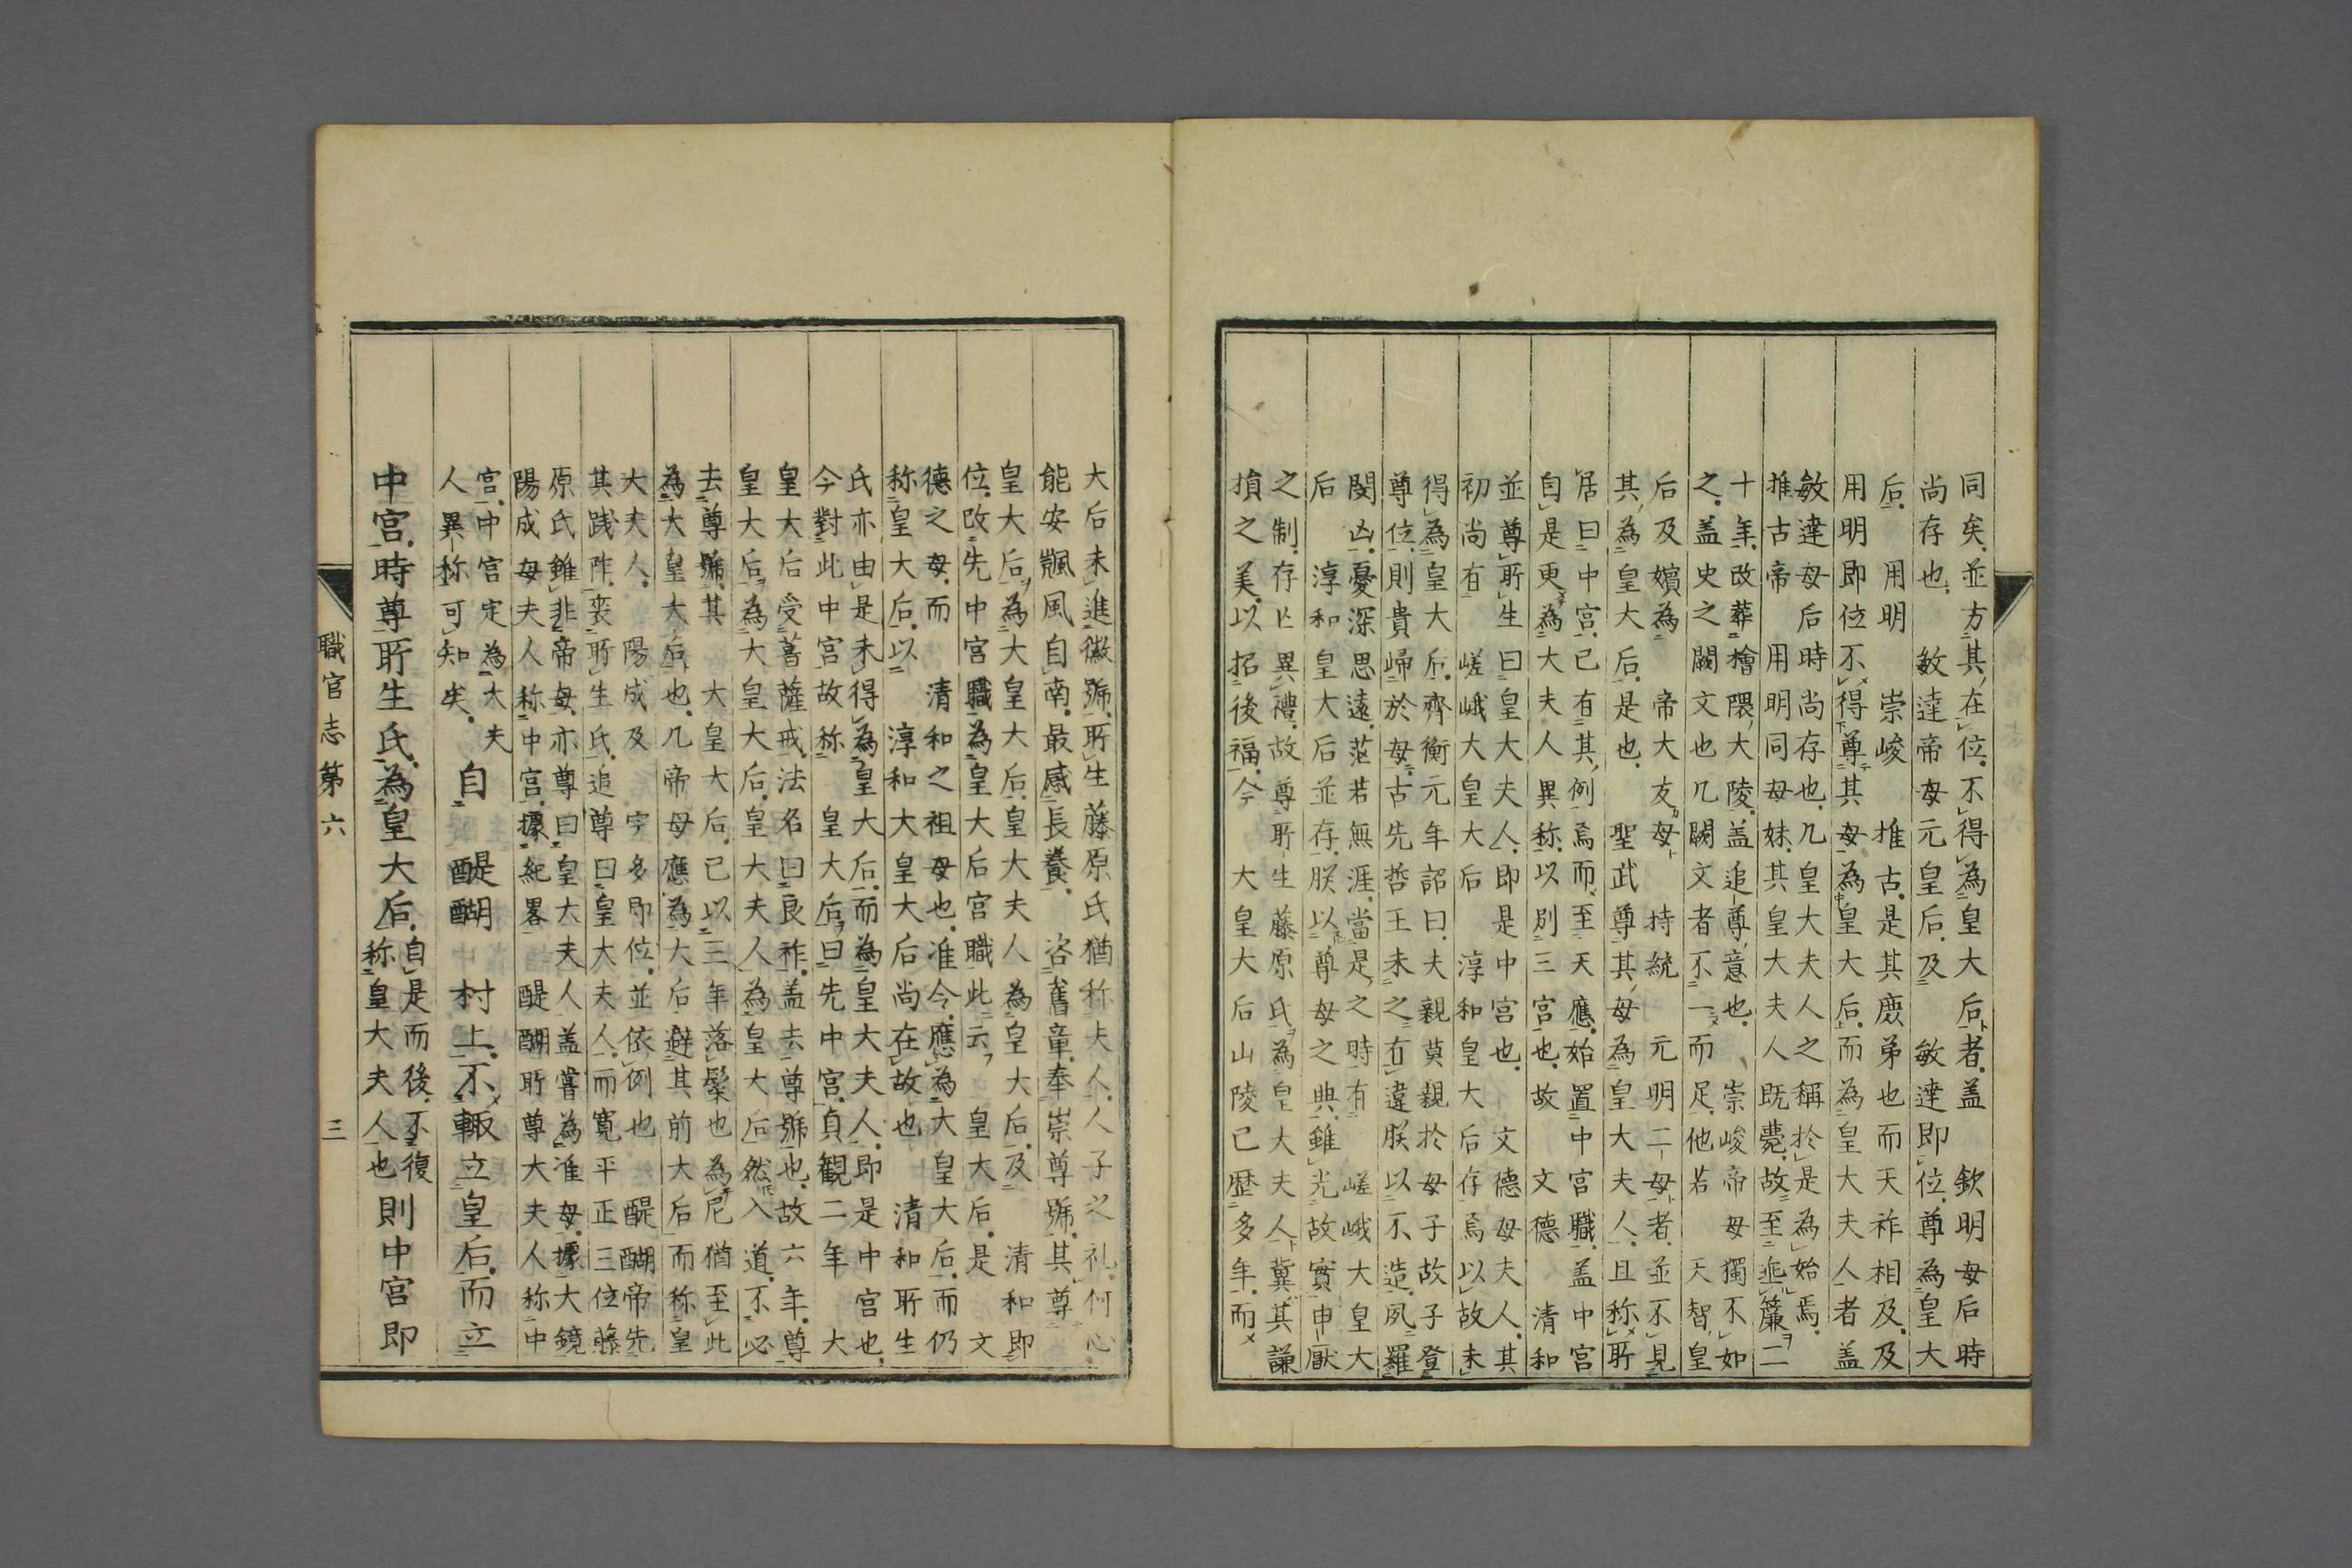 同矣並方其在位不得為皇大后者盖　欽明母后時
尚存也　敏達帝母元皇后及　敏達即位尊為皇大
后　用明　崇峻　推古是其庶弟也而天祚相及及
用明即位不得尊其母為皇大后而為皇大夫人者盖
敏達母后時尚存也凡皇大夫人之稱於是為始焉
推古帝　用明同母妹其皇大夫人既薨故至垂簾二
十年改葬檜隈大陵盖追尊意也　崇峻帝母獨不如
之盖史之闕文也凡闕文者不一而足他若　天智皇
后及嬪為　帝大友母　持統　元明二母者並不見
其為皇大后是也　聖武尊其母為皇大夫人且称所
居曰中宮已有其例焉而至天應始置中宮職盖中宮
自是更為大夫人異称以別三宮也故　文德　清和
並尊所生曰皇大夫人即是中宮也　文德母夫人其
初尚有　嵯峨大皇大后　淳和皇大后存焉以故未
得為皇大后齊衡元年詔曰夫親莫親於母子故子登
尊位則貴歸於母古先哲王未之有違朕以不造夙罹
閔凶憂深思遠茫若無涯當是之時有　嵯峨大皇大
后　淳和皇大后並存朕以尊母之典雖光故實申厭
之制存亡異禮故尊所生藤原氏為皇大夫人冀其謙
損之美以招後福今　大皇大后山陵已歴多年而
大后未進徽號所生藤原氏猶称夫人人子之礼何心
能安颽風自南最感長養　咨舊章奉崇尊號其尊
皇大后為大皇大后皇大夫人為皇大后及　清和即
位改先中宮職為皇大后宮職此云　皇大后是　文
德之母而　清和之祖母也准今應為大皇大后而仍
称皇大后以　淳和大皇大后尚在故也　清和所生
氏亦由是未得為皇大后而為皇大夫人即是中宮也
今對此中宮故称　皇大后曰先中宮貞観二年　大
皇大后受菩薩戒法名曰良祚盖去尊號也故六年尊
皇大后為大皇大后皇大夫人為皇大后然入道不必
去尊號其　大皇大后已以三年落髮也為尼猶至此
為大皇大后也凡帝母應為大后避其前大后而称皇
大夫人　陽成及　宇多即位並依例也　醍醐帝先
其践祚喪所生氏追尊曰皇大夫人而寛平正三位藤
原氏雖非帝母亦尊曰皇大夫人盖嘗為准母據大鏡
陽成母夫人称中宮據紀畧　醍醐所尊大夫人称中
宮中宮定為大夫
人異称可知矣
自　醍醐　村上不輙立皇后而立
中宮時尊所生氏為皇大后
自是而後不復
称皇大夫人也
則中宮即
職官志第六　三